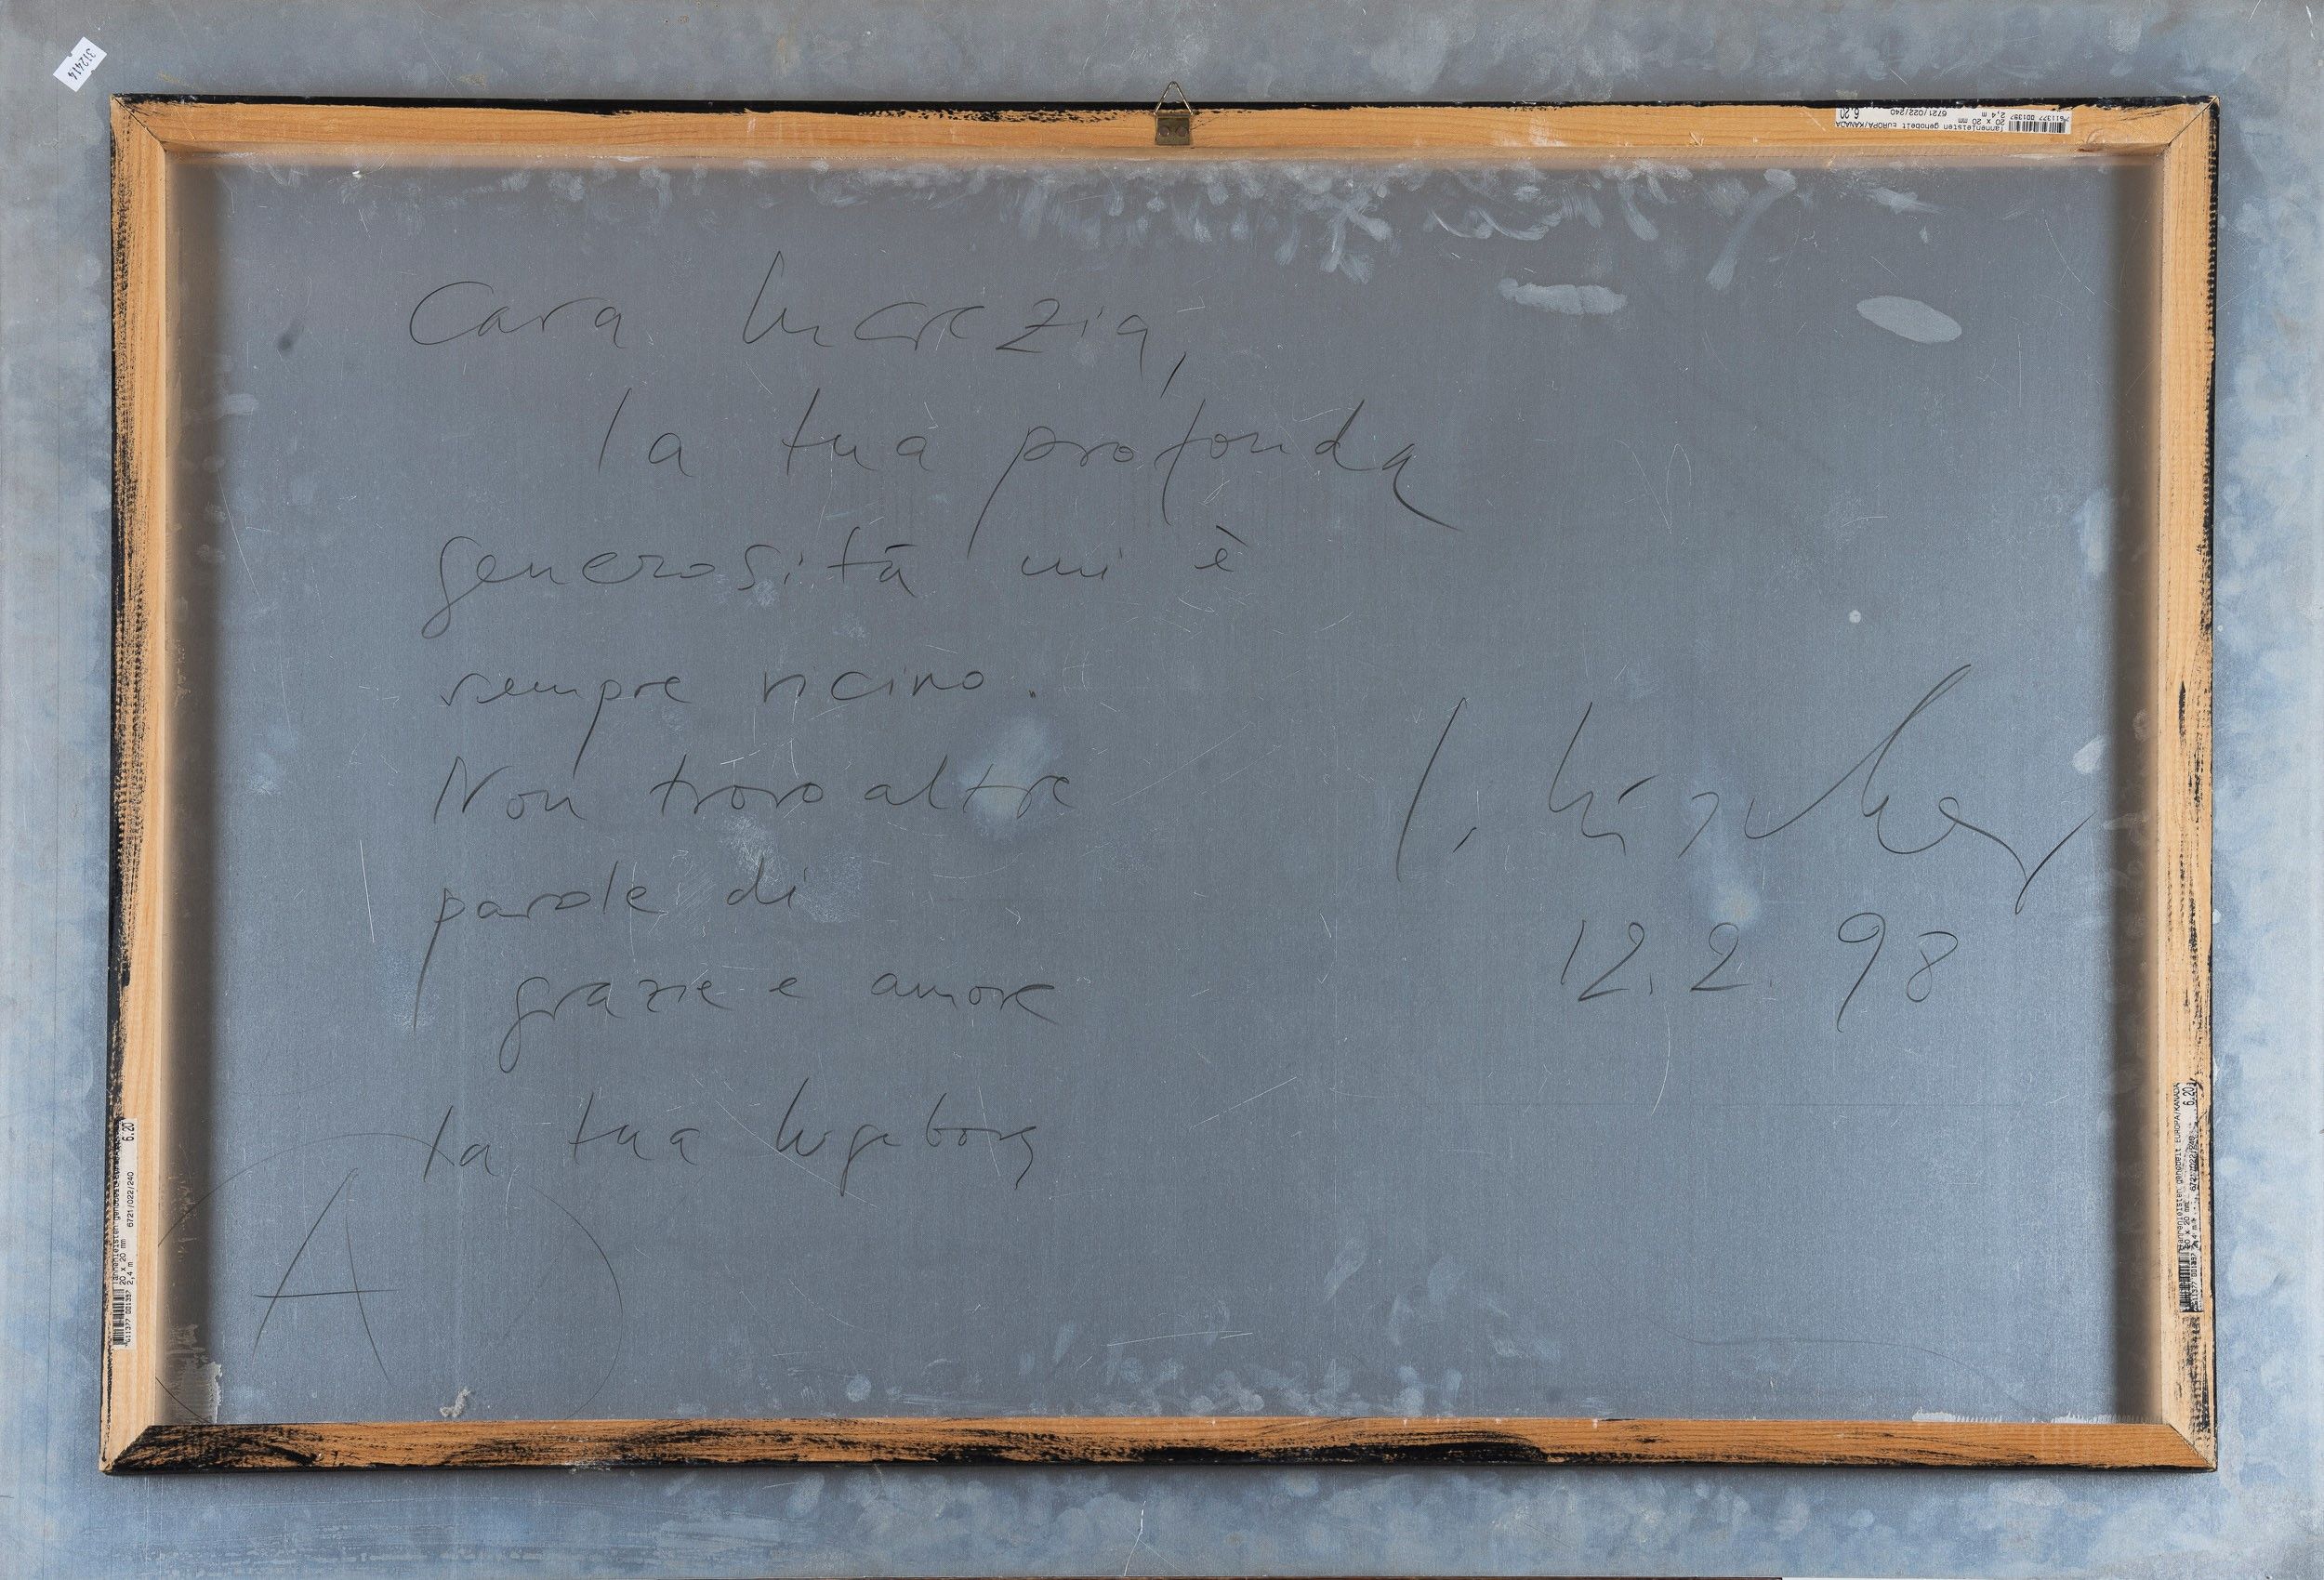 312414
Tannenleisten gehobelt EUROPA/KANADA
20 x 20 mm 6721/022/240
2,4 m 6.20
7611377 001397
Cara Lucrezia,
la tua profonda
generosità mi è
sempre vicino.
Non trovo altre
parole di
grazie e amore
La tua Ingeborg
I. Lüscher
12. 2. 98
A
6.20
20 x 20 mm 6721/022/240
2,4 m
Tannenleisten gehobelt EUROPA/KANADA
20 x 20 mm 6721/022/240 6.20
2,4 m